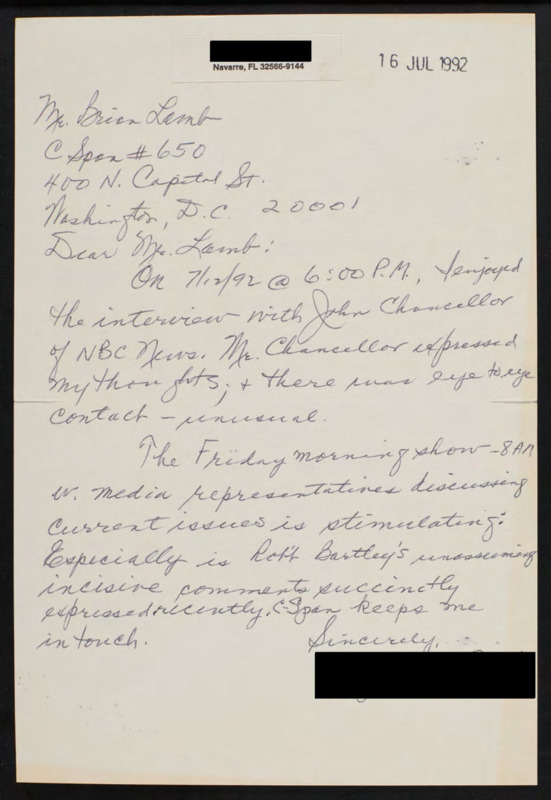 Navarre, FL 32566-9144
16 JUL 1992
Mr. Brian Lamb
C Span # 650
400 N. Capitol St.
Washington, D.C. 20001
Dear Mr. Lamb:
On 7/12/92 @ 6:00 P.M., I enjoyed
the interview with John Chancellor
of NBC News. Mr. Chancellor expressed
my thoughts; + there was eye to eye
contact - unusual.
The Friday morning show - 8 AM
w. media representatives discussing
current issues is stimulating:
Especially is Rob't Bartley's unassuming
incisive comments succinctly
expressed recently. C-Span keeps me
in touch.
Sincerely,